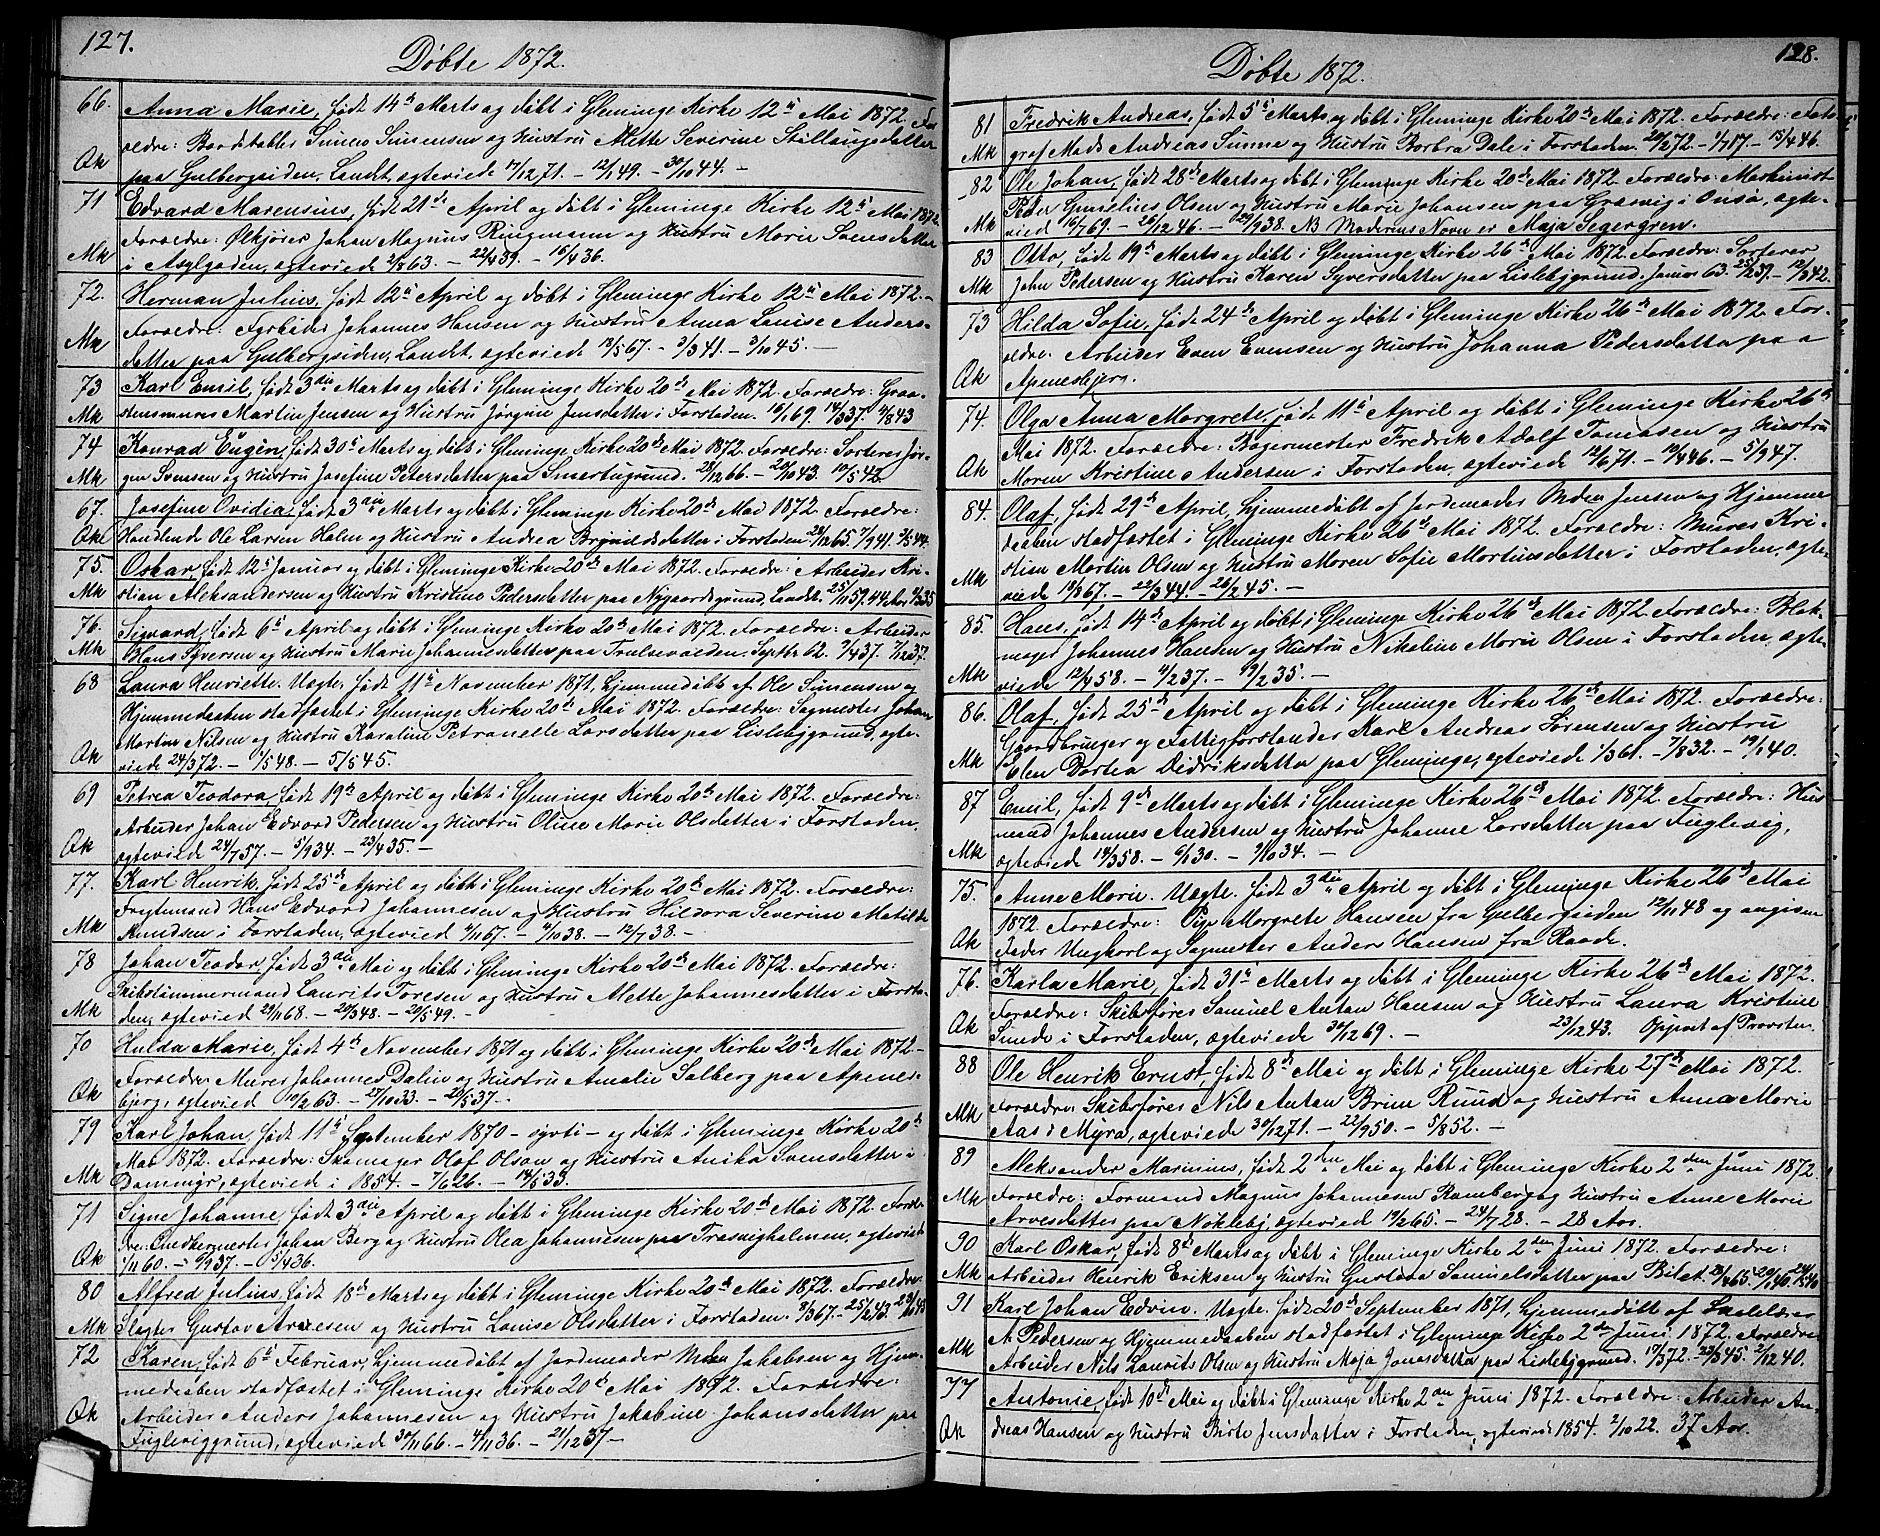 127.
Døbte 1872.
66. Anna Marie, født 14de Marts og døbt i Gleminge Kirke 12te Mai 1872. For
ældre: Simen Simensen og Hustru Mette Severine
Qk paa Gulbergsiden, Landet, ægteviede 17/12 71. – 12/1 49. – 30/10 44. –
71 Edvard Marensius, født 21de April og døbt i Gleminge Kirke 12te Mai 1872
Mk Forældre: Ølkjører Johan Magnus Ringmann og Hustru Marie Svensdatter
i Asylgaden, ægteviede 2/8 63. – 22/4 39. – 16/4 36.
72. Herman Julius, født 12te April og døbt i Gleminge Kirke 12te Mai 1872. –
Forældre: Johannes Hansen og Hustru Anna Louise Anders-
Mk datter paa Gulbergsiden, Landet, ægteviede 18/5 67. – 3/3 41. – 3/10 45. –
73 Karl Emil, født 3die Marts og døbt i Gleminge Kirke 20de Mai 1872. Forældre: Graa-
Mk stensmurer Martin Jensen og Hustru Jørgine Jensdatter i Forstaden. 16/1 69. 14/3 37. 11/8 43
74 Konrad Eugén, født 30te Marts og døbt i Gleminge Kirke 20de Mai 1872. Forældre: Sorterer Jør-
Mk gen Svensen og Hustru Josefine Petersdatter paa Smertugrund. 28/12 66. – 20/10 43. 10/5 42.
67. Josefine Ovidia, født 3die Marts og døbt i Gleminge Kirke 20de Mai 1872. Forældre:
Qk Handlende Ole Larsen Holm og Hustru Andrea Brynildsdatter i Forstaden. 28/12 65. 7/9 41. 2/5 44.
75. Oskar, født 12te Januar og døbt i Gleminge Kirke 20de Mai 1872. Forældre: Arbeider Kri-
Mk stian Aleksandersen og Hustru Kristine Pedersdatter paa Nygaardsgrund, Landet. 25/11 59. 44 Aar
76. Sigvard, født 6te April og døbt i Gleminge Kirke 20de Mai 1872. Forældre: Arbeider
Mk Hans Syversen og Hustru Marie Johannesdatter paa Trulsevolden. Septbr 62. 7/4 37. 7/12 37.
68 Laura Henriette. Uægte. født 11te November 1871, hjemmedøbt af Ole Simensen og
Hjemmedaaben stadfæstet i Gleminge Kirke 20de Mai 1872. Forældre: Sagmester Johan
Martin Nilsen og Hustru Karoline Petronelle Larsdatter paa Lislebygrund, ægte-
Qk viede 24/3 72. – 1/5 48. – 5/5 45.
69 Petrea Teodora, født 19de April og døbt i Gleminge Kirke 20de Mai 1872. Forældre:
Arbeider Johan Edvard Pedersen og Hustru Oline Marie Olsdatter i Forstaden,
Qk ægteviede 24/7 57. – 5/9 34. – 23/4 35. –
77. Karl Henrik, født 25de April og døbt i Gleminge Kirke 20de Mai 1872. Forældre:
Fragtemand Hans Edvard Johannesen og Hustru Hildora Severine Matilde
Mk Knudsen i Forstaden, ægteviede 4/11 67. – 4/10 38. – 12/7 38. –
78 Johan Teodor, født 3die Mai og døbt i Gleminge Kirke 20de Mai 1872. Forældre:
Skibstømmermand Laurits Toresen og Hustru Mette Johannesdatter i Forsta-
Mk den, ægteviede 29/11 68. – 29/3 48. – 20/5 49. –
70 Hulda Marie, født 4de November 1871 og døbt i Gleminge Kirke 20de Mai 1872 –
Forældre: Murer Johannes Dalin og Hustru Amalie Solberg paa Apenes-
Qk bjerg, ægteviede 10/2 63. – 27/10 33. – 20/5 37. –
79 Karl Johan, født 11te September 1870 – og døbt i Gleminge Kirke 20de
Mai 1872. Forældre: Skomager Olaf Olson og Hustru Anika Svensdatter i
Mk ægteviede i 1854. – 7/6 26. – 14/5 33.
71 Signe Johanne, født 3die April og døbt i Gleminge Kirke 20de Mai 1872. Foræl-
dre: Snedkermester Johan Berg og Hustru Olea Johannesen paa Trosvigholmen, ægteviede
Qk 1/11 60. – 6/9 37. – 5/4 36.
80 Alfred Julius, født 18de Marts og døbt i Gleminge Kirke 20de Mai 1872. Forældre:
Mk Slagter Gustav Arnesen og Hustru Louise Olsdatter i Forstaden. 8/3 67. – 25/12 43. 20/10 45
72 Karen, født 6te Februar, hjemmedøbt af Jordemoder Maren Jakobsen og Hjem-
medaaben stadfæstet i Gleminge Kirke 20de Mai 1872. Forældre:
Qk Arbeider Anders Johannesen og Hustru Jakobine Johansdatter paa
Fugleviggrund, ægteviede 30/11 66. – 4/11 36. – 21/12 37 –
128.
Døbte 1872.
81 Fredrik Andreas, født 5te Marts og døbt i Gleminge Kirke 20de Mai 1872. Forældre: Foto-
Mk graf Mads Andreas Sunne og Hustru Borbra Dale i Forstaden. 20/2 72. – 1/7 17. – 15/4 46.
82 Ole Johan, født 28de Marts og døbt i Gleminge Kirke 20de Mai 1872. Forældre: Maskinist
Peder Gunelius Olsen og Hustru Marie Johansen paa Græsvig i Onsø, ægte-
Mk viede 16/7 69. – 26/12 46. – 29/9 38. NB Moderens Navn er Maja Segergren.
83 Otto, født 19de Marts og døbt i Gleminge Kirke 26de Mai 1872. Forældre: Sorterer
Mk John Pedersen og Hustru Karen Syversdatter paa Lislebygrund. Januar 63. 25/2 37. – 12/8 42.
73 Hilda Sofie, født 24de April og døbt i Gleminge Kirke 26de Mai 1872. For-
ældre: Arbeider Even Evensen og Hustru Johanna Pedersdatter paa
Qk Apenesbjerg.
74. Olga Anna Margrete, født 11te April og døbt i Gleminge Kirke 26de
Mai 1872. Forældre: Bagermester Fredrik Adolf Tomasen og Hustru
Qk Maren Kristine Andersen i Forstaden, ægteviede 12/6 71. – 19/4 46. – 5/9 47.
84. Olaf, født 29de April, hjemmedøbt af Jordemoder Maren Jensen og Hjemme
daaben stadfæstet i Gleminge Kirke 26de Mai 1872. Forældre: Murer Kri-
Mk stian Martin Olsen og Hustru Maren Sofie Martinsdatter i Forstaden, ægte-
viede 18/8 67. – 22/3 44. – 26/2 45. –
85. Hans, født 14de April og døbt i Gleminge Kirke 26de Mai 1872. Forældre: Blok-
mager Johannes Hansen og Hustru Nikoline Marie Olsen i Forstaden, ægte-
Mk viede 12/4 58. – 4/2 37. – 19/2 35. –
86. Olaf, født 25de April og døbt i Gleminge Kirke 26de Mai 1872. Forældre:
Gaardbruger og Fattigforstander Karl Andreas Sørensen og Hustru
Mk Elen Dortea Didriksdatter paa Gleminge, ægteviede 1/3 61. – 7/8 32. – 19/1 40.
87 Emil, født 9de Marts og døbt i Gleminge Kirke 26de Mai 1872. Forældre: Hus
mand Johannes Andersen og Hustru Johanne Larsdatter paa Fuglevig,
Mk ægteviede 14/3 58. – 6/1 30. – 9/10 34. –
75. Anne Marie. Uægte. født 3die April og døbt i Gleminge Kirke 26de Mai
1872. Forældre: Pige Margrete Hansen fra Gulbergsiden 12/11 48 og angiven
Qk Fader Ungkarl og Sagmester Anders Hansen fra Raade.
76. Karla Marie, født 31te Marts og døbt i Gleminge Kirke 26de Mai 1872.
Forældre: Skibsfører Samuel Antan Hansen og Hustru Laura Kristine
Qk Sunde i Forstaden, ægteviede 30/12 69. – 23/12 43. Oppört af Provsten.
88 Ole Henrik Ernst, født 8de Mai og døbt i Gleminge Kirke 27de Mai 1872.
Mk Forældre: Skibsfører Nils Antan Brun Ruud og Hustru Anna Marie
Aas i Myra, ægteviede 30/12 71. – 22/9 50. – 5/8 52. –
89 Aleksander Marinius, født 2den Mai og døbt i Gleminge Kirke 2den Juni 1872.
Mk Forældre: Formand Magnus Johannesen Ramberg og Hustru Anne Marie
Arvesdatter paa Nokleby, ægteviede 19/2 65. – 24/7 28. – 28 Aar.
90 Karl Oskar, født 8de Marts og døbt i Gleminge Kirke 2den Juni 1872. Forældre:
Mk Arbeider Henrik Eriksen og Hustru Gustava Samuelsdatter paa Bilet. 23/4 65. 20/1 40.
91 Karl Johan Edvin. Uægte. født 20de September 1871, hjemmedøbt af Skolelærer
Mk A. Pedersen og Hjemmedaaben stadfæstet i Gleminge Kirke 2den Juni 1872. Forældre
Arbeider Nils Laurits Olsen og Hustru Maja Jonasdatter paa Lislebygrund. 17/3 72. – 22/3 45. 2/12 40.
77 Antonie, født 10de Mai og døbt i Gleminge Kirke 2den Juni 1872. Forældre: Arbeider An-
Qk dreas Hansen og Hustru Birte Jensdatter i Forstaden, ægteviede 1854. 2/10 22. 37 Aar.